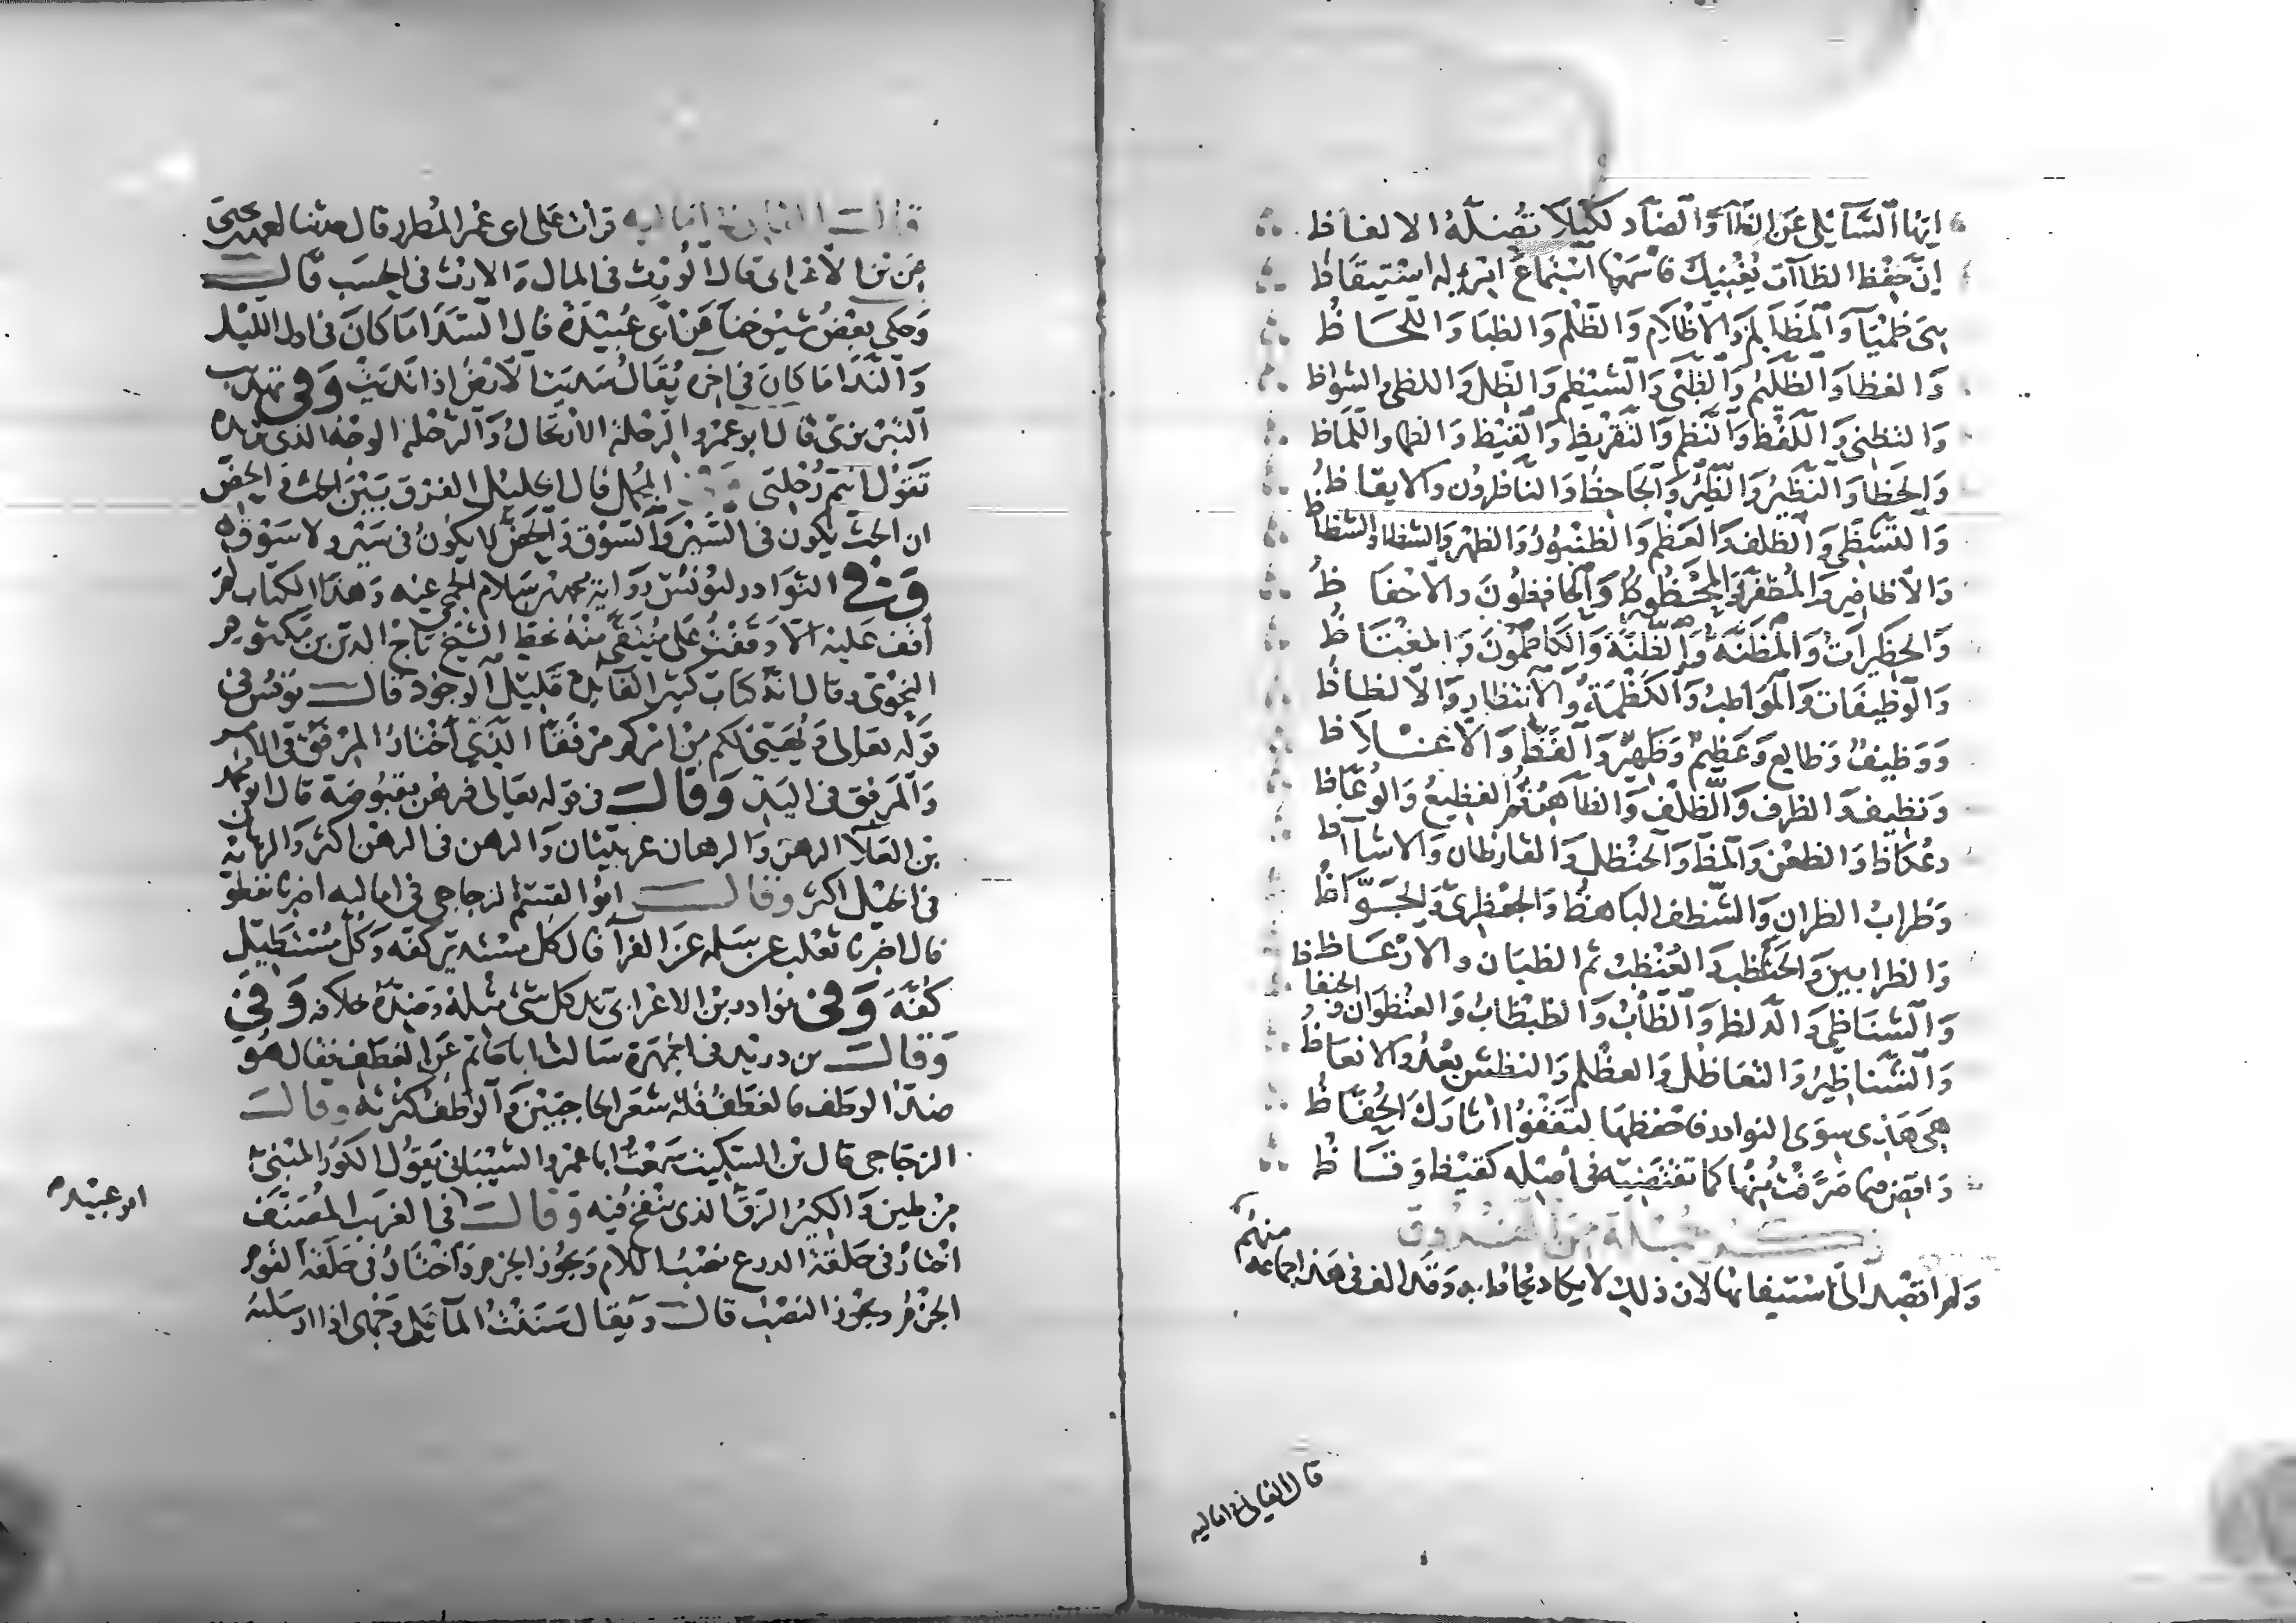 ايها السائلي عن الظاء والضاد لكيلا تضله الالفاظ
ان حفظ الظاآت يغنيك فاسمعها استماع امرئ له استيقاظ
هي ظمياء والمظالم والاظلام والظلم والظبا واللحاظ
والعظا والظليم والظبي والشيظم والظل واللظى والشواظ
والتظني واللفظ والنظم والتقريظ والقيظ والظما واللماظ
والحظا والنظير والظئر والجاحظ والناظرون والايقاظ
والتشظي والظلف والعظم والظنبوب والظهر والشظا والشظاظ
والاظافير والمظفر والمحظور والحافظون والاحفاظ
والحظيرات والمظنة والظنة والكاظمون والمغتاظ
والوظيفات والمواظب والكظمة والانتظار والالظاظ
ووظيف وظالع وعظيم وظهير والفظ والاغلاظ
ونظيف والظرف والظلف والظاهر ثم الفظيع والوعاظ
وعكاظ والظعن والمظ والحنظل والقارظان والاوشاظ
وظراب الظران والشظف الباهظ والجعظري والجواظ
والظرابين والحنظب والعنظب ثم الظيان والارعاظ
والشناظي والدلظ والظأب والظبظاب والعنظوان والجنعاظ
والشناظير والتعاظل والعظلم والبظر بعد والانعاظ
هي هذي سوى النوادر فاحفظها لتقفوا اثارك الحفاظ
واقض فيما صرفت منها كما تقتضيه في اصله كقيظ وقاظ
ذكر جملة من الفروق
ولم اقصد الى استيفائها لان ذلك لا يكاد يحاط به وقد الف في هذا جماعه منهم
قال القالي في اماليه
قال القالي في اماليه قرات على ابي عمر المطرز قال حدثنا احمد بن يحيى
عن بن الاعرابي قال الورث في المال والارث في الحسب قال
وحكى بعض شيوخنا عن ابي عبيدة قال السدا ما كان في اول الليل
والندا ما كان في اخره يقال سديت الارض اذا نديت وفي تهذيب
التبريزي قال ابو عمرو الرحلة الارتحال والرحلة الوجه الذي تريده
تقول انتم رحلتي وفي المجمل قال الخليل الفرق بين الحث والحض
ان الحث يكون في السير والسوق والحض لا يكون في سير ولا سوق
وفي النوادر ليونس رواية محمد بن سلام الجمحي عنه وهذا الكتاب لم
اقف عليه الا وقفت على منتقى منه بخط الشيخ تاج الدين بن مكتوم
النحوي وقال انه كتاب كثير الفائدة قليل الوجود قال يونس في
قوله تعالى ويهيئ لكم من امركم مرفقا الذي اختار المرفق في الامر
والمرفق في اليد وقال في قوله تعالى فرهن مقبوضة قال ابو عمرو
بن العلاء الرهن والرهان عربيتان والرهن في الرهن اكثر والرهان
في الخيل اكثر وقال ابو القسم الزجاجي في اماليه اخبرنا نفطويه
قال اخبرنا ثعلب عن سلمه عن الفرا قال كل مستدير كفه وكل مستطيل
كفة وفي نوادر بن الاعرابي ند كل شي مثله وضده خلافه وفي
وقال بن دريد في الجمهرة سالت ابا حاتم عن الغطف فقال هو
ضد الوطف فالغطف قلة شعر الحاجبين والوطف كثرته وقال
الزجاجي قال بن السكيت سمعت ابا عمرو الشيباني يقول الكور المبني
من طين والكير الزق الذي ينفخ فيه وقال في الغريب المصنف
ابو عبيدة
اختار في حلقة الدرع نصب اللام ويجوز الجزم واختار في حلقة القوم
الجزم ويجوز النصب قال ويقال سننت الماء على وجهي اذا ارسلته